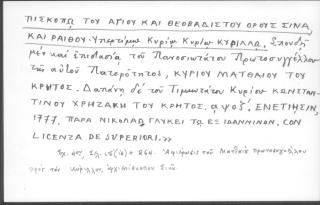 ΠΙΣΚΟΠῼ ΤΟΥ ΑΓΙΟΥ ΚΑΙ ΘΕΟΒΑΔΙΣΤΟΥ ΟΡΟΥΣ ΣΙΝΑ,
ΚΑΙ ΡΑΙΘΟΥ· Ὑπερτίμῳ Κυρίῳ Κυρίῳ ΚΥΡΙΛΛῼ. Σπουδῇ
μὲν καὶ ἐπιστασίᾳ τοῦ Πανοσιωτάτου Πρωτοσυγγέλλου
τῆς αὐτοῦ Πατερότητος, ΚΥΡΙΟΥ ΜΑΤΘΑΙΟΥ ΤΟΥ
ΚΡΗΤΟΣ. Δαπάνῃ δὲ τοῦ Τιμιωτάτου Κυρίου ΚΩΝΣΤΑΝ-
ΤΙΝΟΥ ΧΡΗΣΑΚΗ ΤΟΥ ΚΡΗΤΟΣ. αψοζ. ΕΝΕΤΙΗΣΙΝ,
1777. ΠΑΡΑ ΝΙΚΟΛΑῼ ΓΛΥΚΕΙ Τῼ ΕΞ ΙΩΑΝΝΙΝΩΝ. CON
LICENZA DE SUPERIORI.»
Σχ. 4ον, Σελ. + 264. Ἀφιέρωσις τοῦ Ματθαίου πρωτοσυγκέλλου
πρὸς τὸν Κύριλλον ἀρχιεπίσκοπον Σινᾶ.